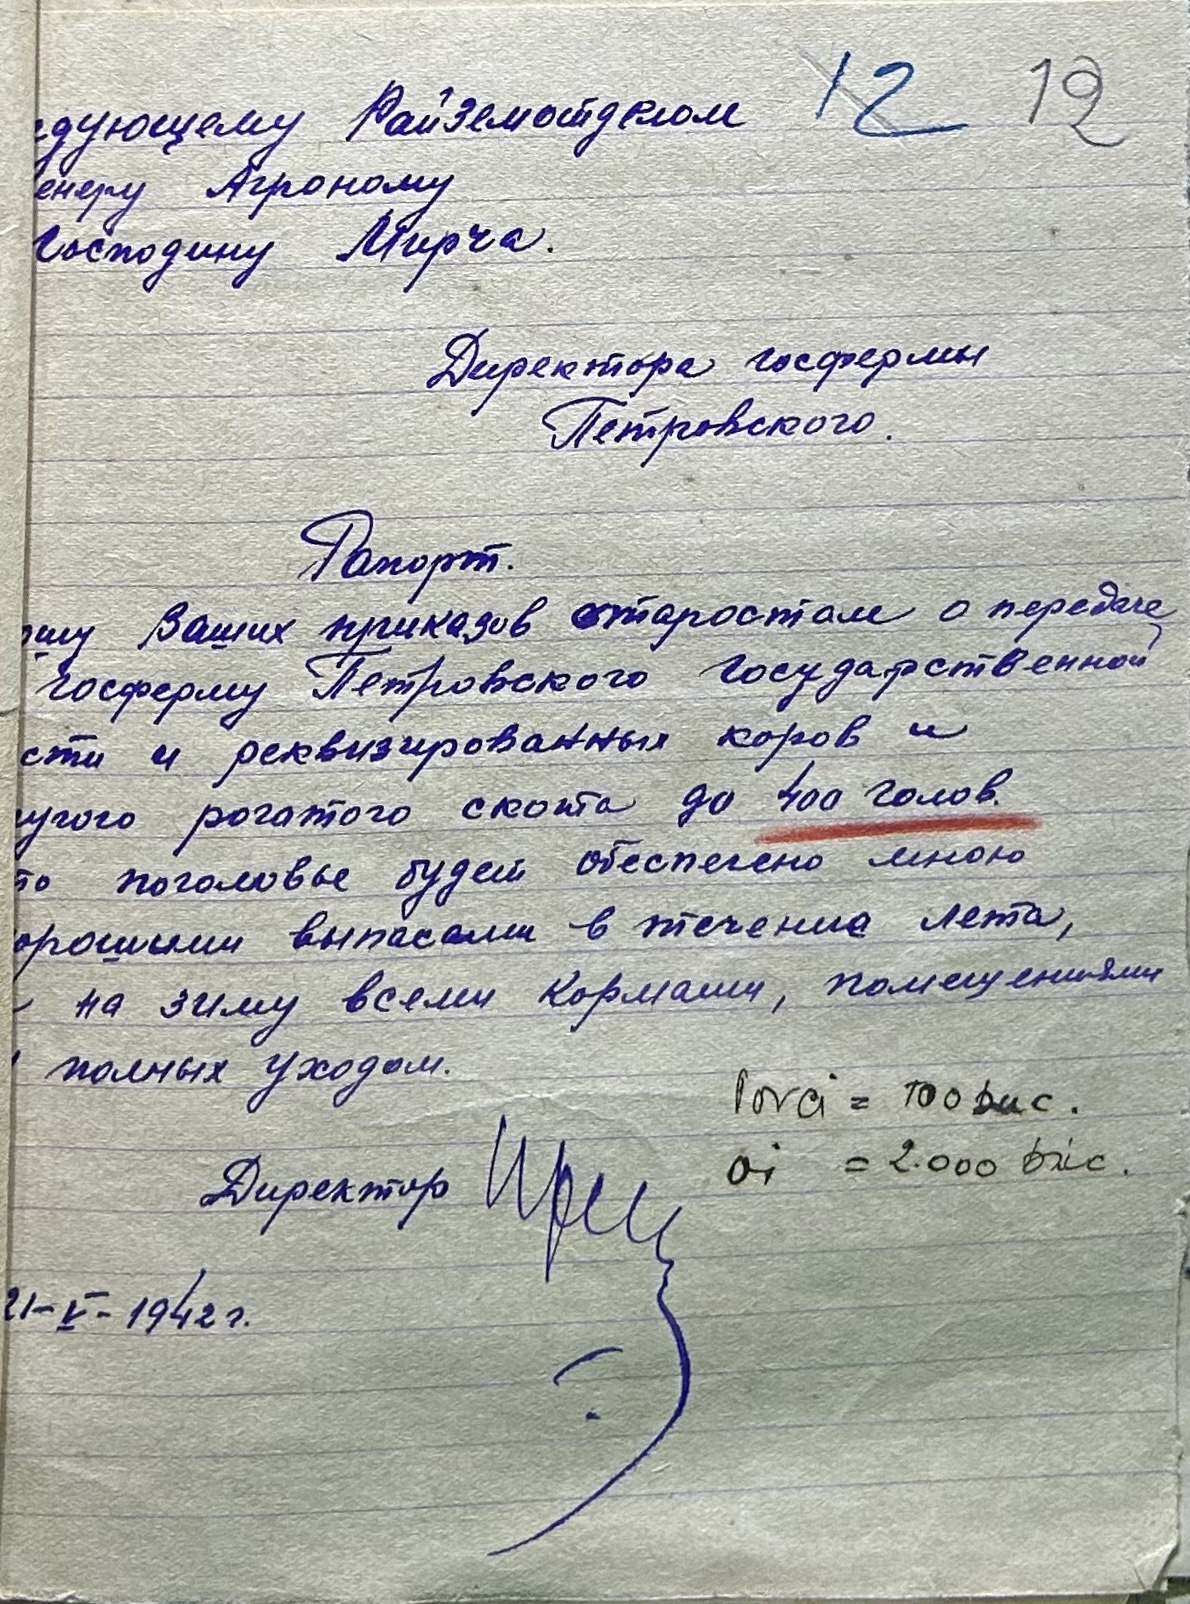 12 12
дующему РайЗемотделом
енеру Агроному
Господину Мирча.
Директора госфермы
Петровского.
Рапорт.
ошу Ваших приказов старостам о передаче
госферму Петровского государственной
сти и реквизированных коров и
угого рогатого скота до 400 голов.
то поголовье будет обеспечено мною
орошими выпасами в течение лета,
на зиму всеми кормами, помещениями
и полных уходом.
Porci = 100 buc.
oi = 2.000 buc.
Директор
21-V-1942 г.